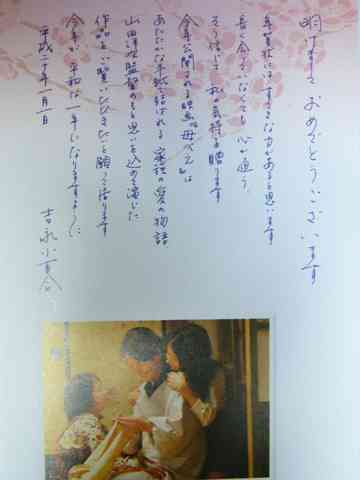 明けまして おめでとうございます
年賀状にはすてきな力があると思います
長く会っていなくても 心が通う
そう信じて 私の気持を贈ります
今年公開される映画『母べえ』は
あたたかな手紙で結ばれる 家族の愛の物語
山田洋次監督のもと思いを込めて演じた
作品をご覧いただきたいと願って居ります
今年が 平和な一年になりますように
平成二十年一月一日
吉永小百合